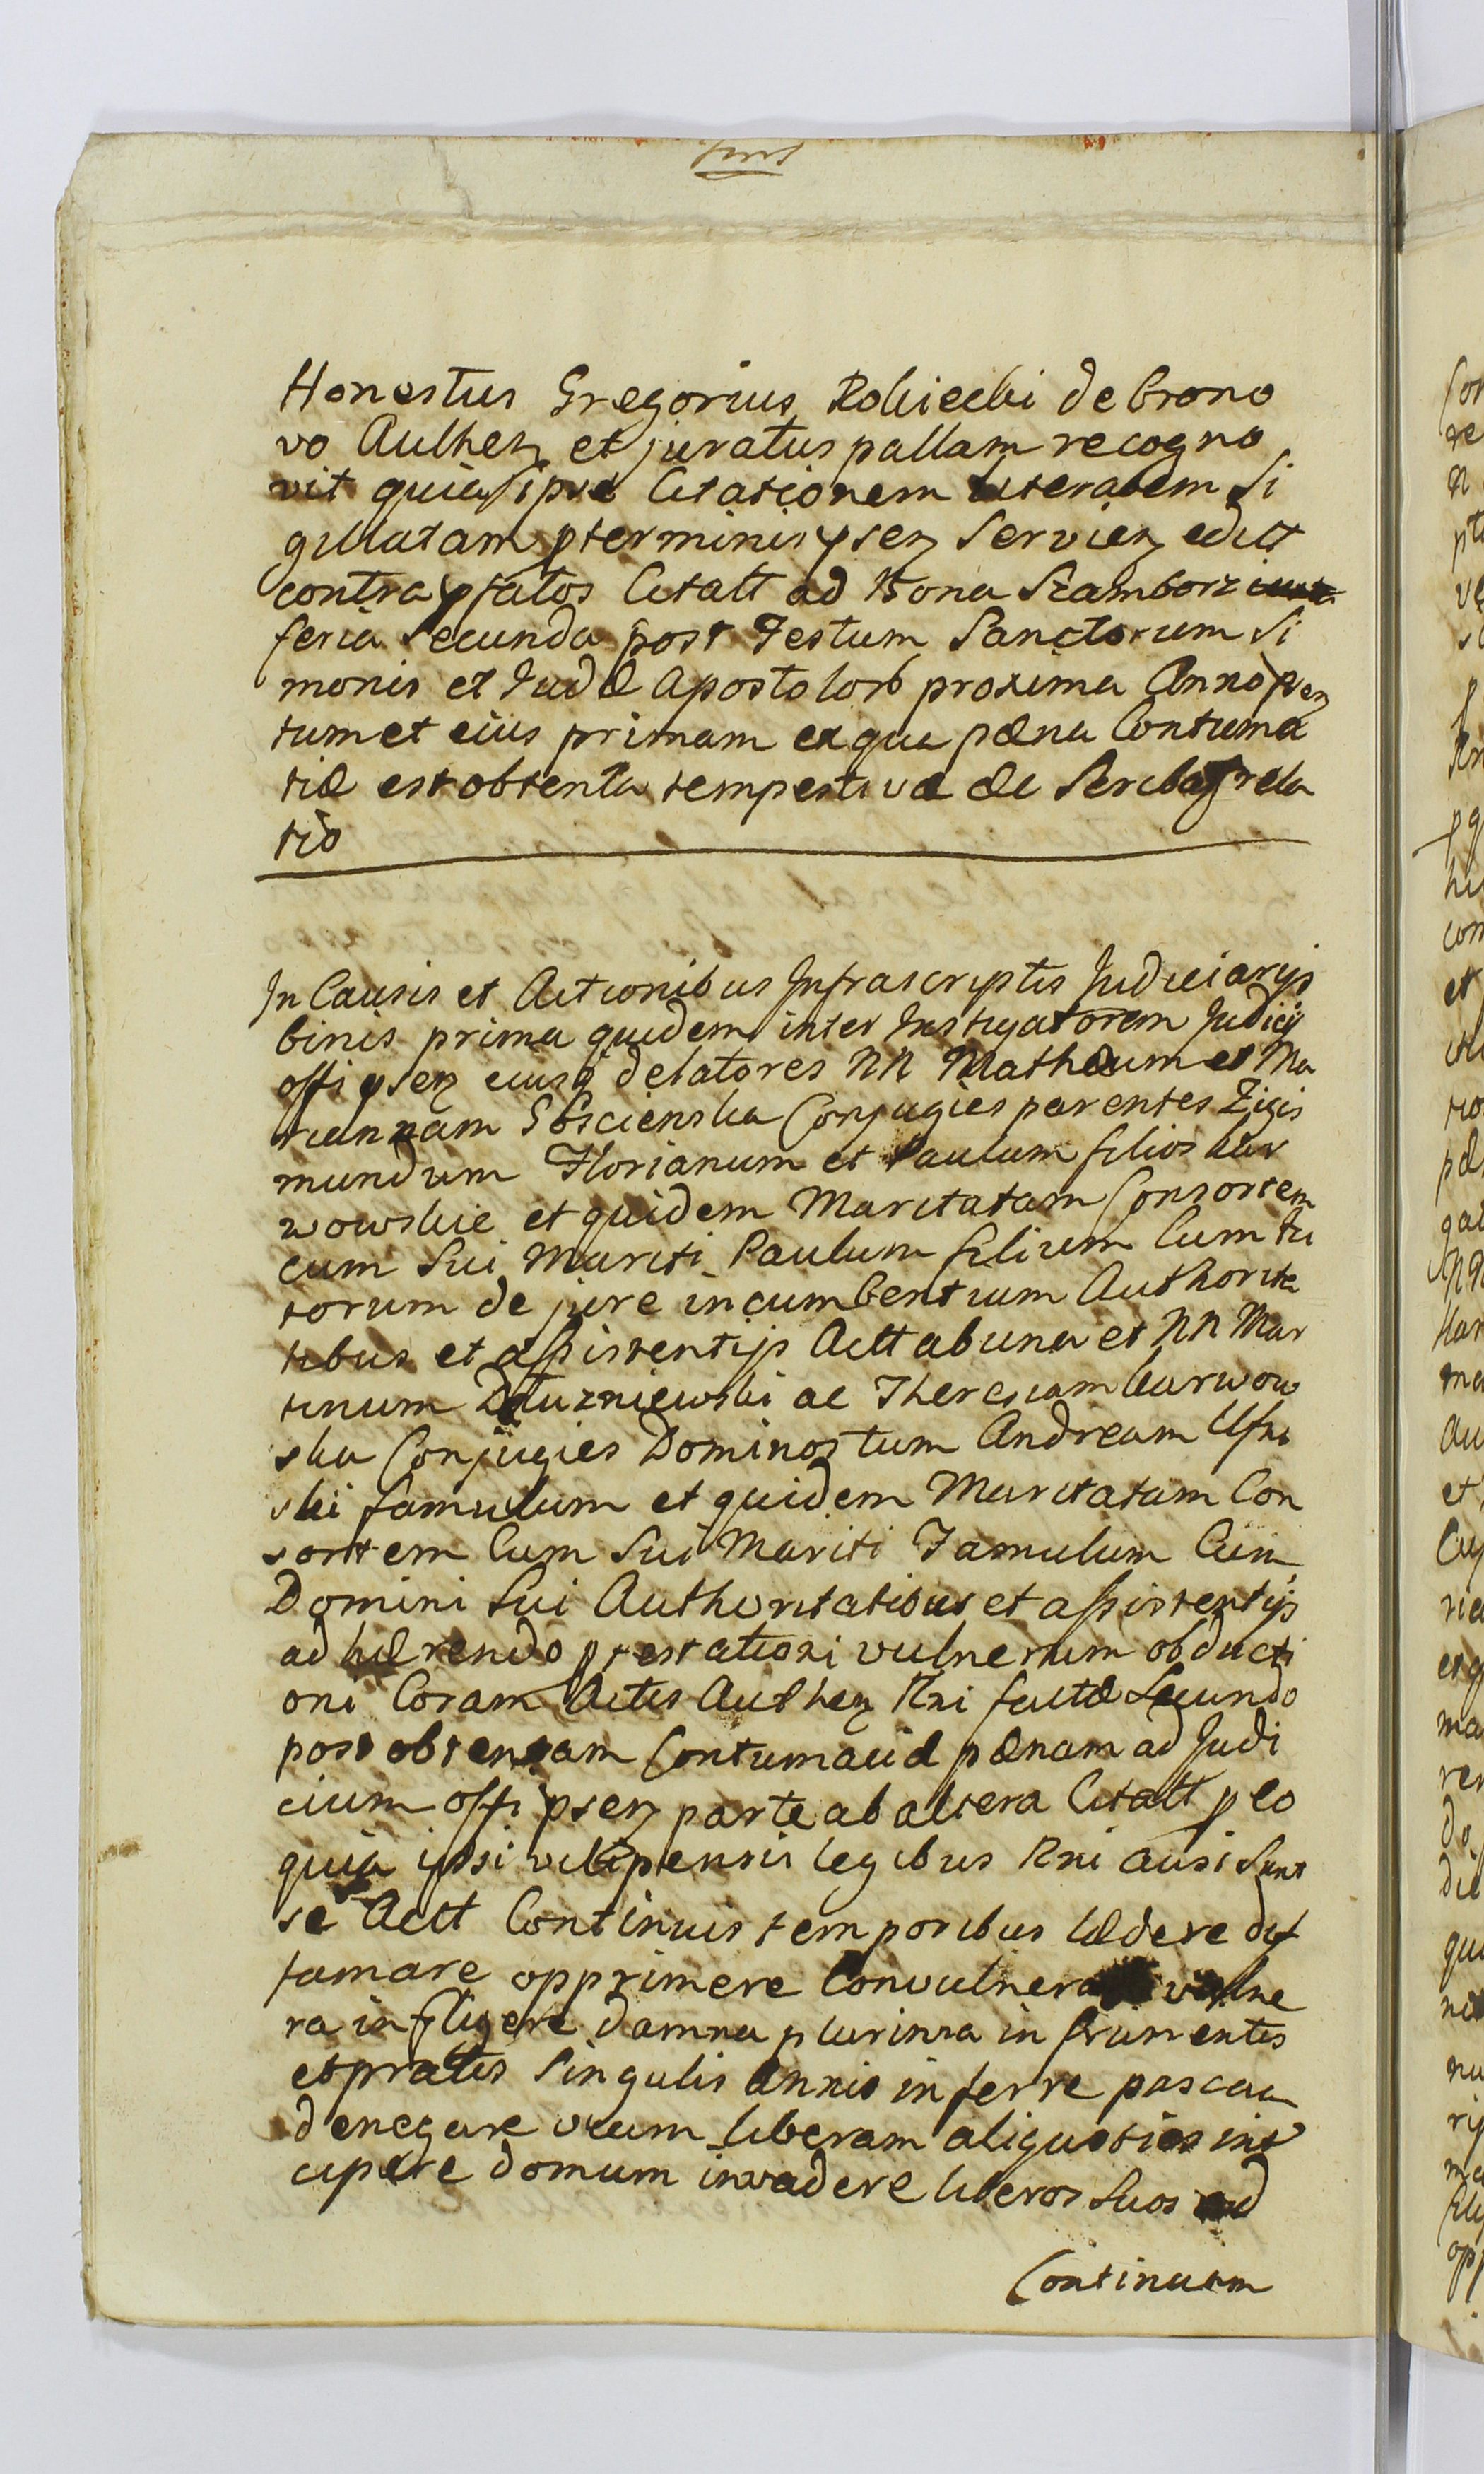 Honestus Gregorius Robiecki de Crono
vo Authen et juratus pallam recogno
vit quia ipse Citationem literalem Si
gillatam pterminis psen Servien edict
contra pfatos Citatt ad Bona Szamborz
feria secunda post Festum Sanctorum Si
monis et Judæ Apostolorb proxima Anno pren
tum et eius primam ex qua pæna Contuma
tiæ est obtenta tempestivæ de rela
tio
In Causis et Actionibus Infrascriptis Judiciarijs
binis prima quidem inter Instigatorem Judicij
offi psen eiusq delatores NN Mathæum et Ma
riannam Conjugies parentes Zigis
mundum Florianum et Paulum filios Kar
wowskie et quidem Maritatam Consortem
cum Sui Mariti Paulum filium Cum tu
torum de jure incumbentium Authorita
tibus et assistentijs Actt ab una et NN Mar
tinum Dłuzniewski ac Theresiam Karwow
ska Conjugies Dominos tum Andream
ski famulum et quidem Maritatam Con
sortem Cum Sui Mariti Famulum Cum
Domini Sui Authoritatibus et assistentijs
ad hærendo ptestationi vulnerum obducti
oni Coram Actis Authen Rni factæ Secundo
post obtentam Contumaciæ pænam ad Judi
cium offi psen parte ab altera Citatt p eo
quia ipsi vilipensis legibus Rni ausi sunt
se Actt Continuis temporibus lædere dif
famare opprimere Convulnera vulne
ra infligere damna plurima in frumentis
et pratis Singulis Annis inferre pascua
denegare viam liberam aliquoties int
cipere domum invadere liberos Suos ad
Continuam